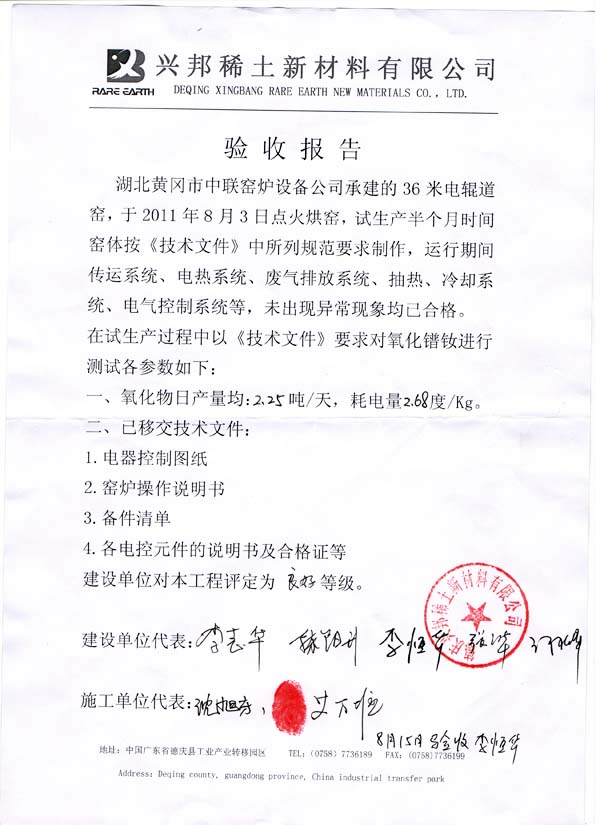 兴邦稀土新材料有限公司
RARE EARTH
DEQING XINGBANG RARE EARTH NEW MATERIALS CO., LTD.
验收报告
湖北黄冈市中联窑炉设备公司承建的36米电辊道
窑，于2011年8月3日点火烘窑，试生产半个月时间
窑体按《技术文件》中所列规范要求制作，运行期间
传运系统、电热系统、废气排放系统、抽热、冷却系
统、电气控制系统等，未出现异常现象均已合格。
在试生产过程中以《技术文件》要求对氧化镨钕进行
测试各参数如下：
一、氧化物日产量均：2.25吨/天，耗电量2.68度/Kg。
二、已移交技术文件：
1.电器控制图纸
2.窑炉操作说明书
3.备件清单
4.各电控元件的说明书及合格证等
建设单位对本工程评定为 良好 等级。
德庆兴邦稀土新材料有限公司
建设单位代表：李志华 李恒华
施工单位代表：沈旭方
8月15日 验收 李恒华
地址：中国广东省德庆县工业产业转移园区 TEL：(0758) 7736189 FAX：(0758)7736199
Address: Deqing county, guangdong province, China industrial transfer park